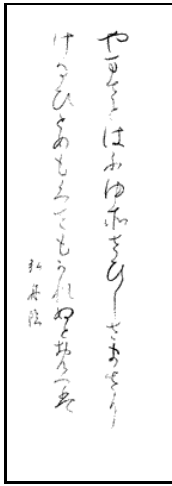 やまさとはふゆ所さひしさまさり
けるひとめもくさもかれぬとおもへは